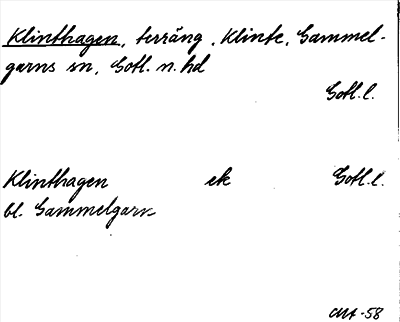 Klinthagen, terräng, Klinte, Gammel-
garns sn, Gotl. n. hd
Gotl. l.
Klinthagen ek Gotl. l.
bl. Gammelgarn
-58